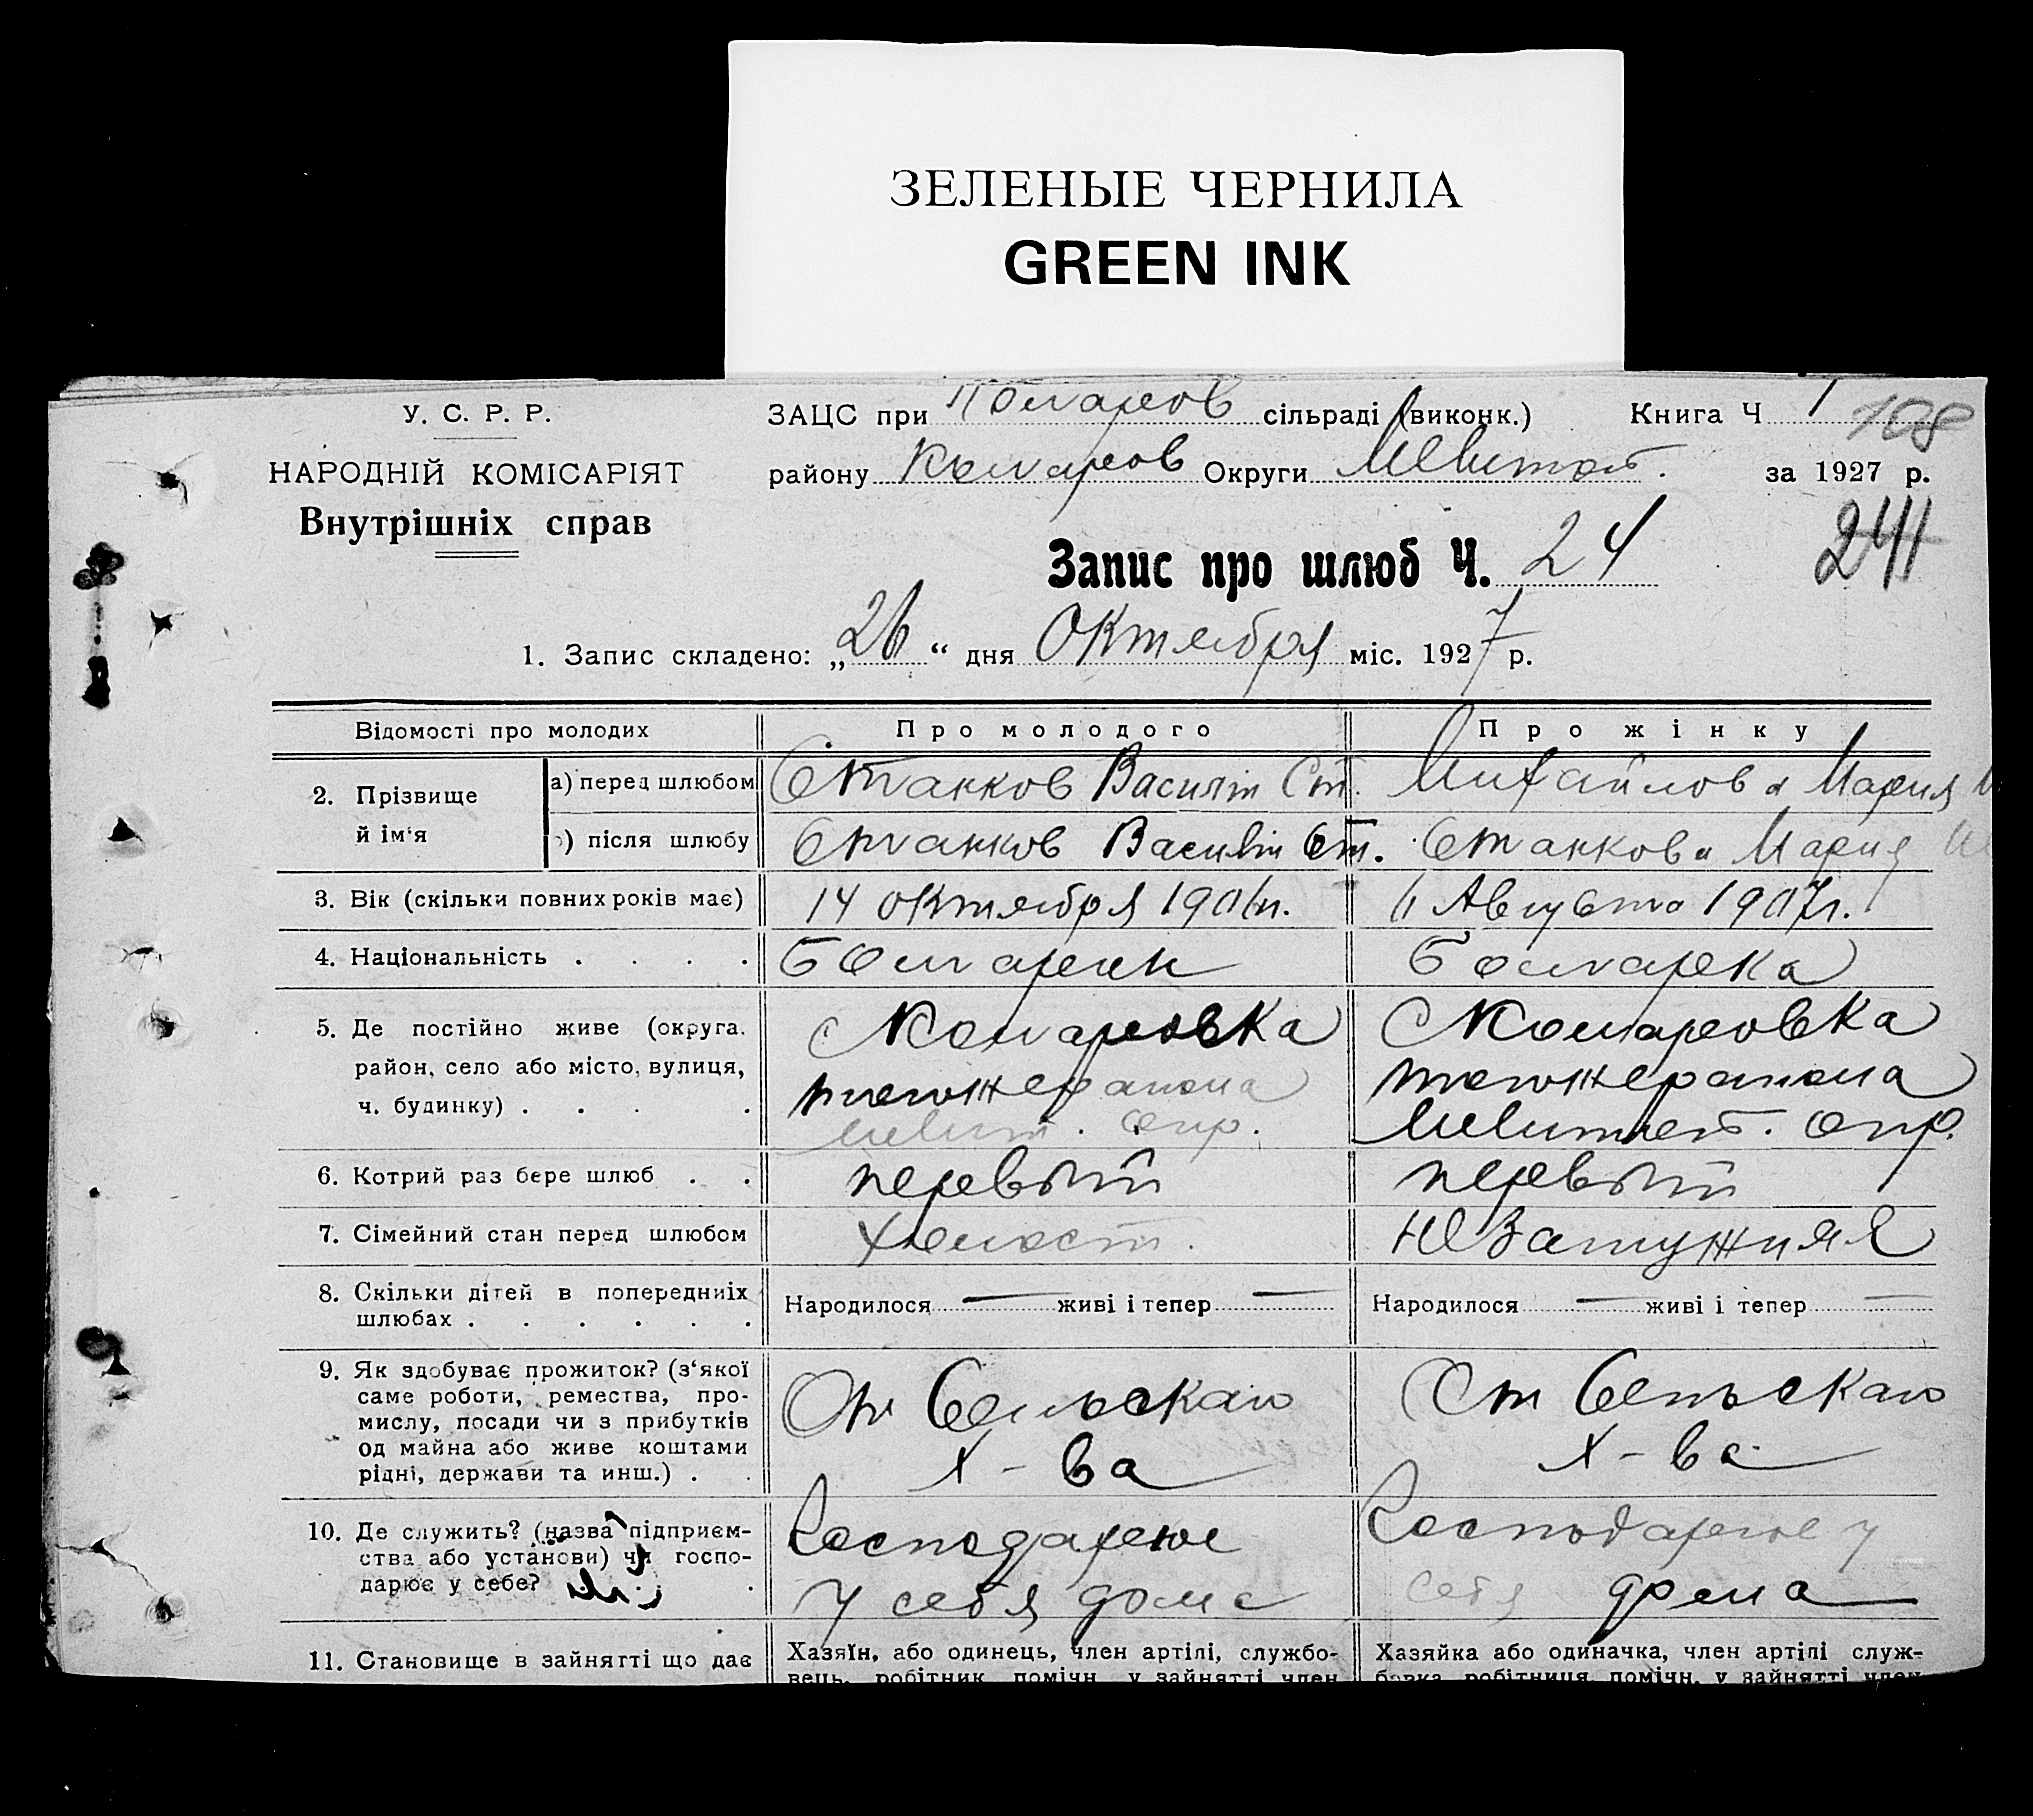 ЗЕЛЕНЫЕ ЧЕРНИЛА
GREEN INK
У. С. Р. Р.
НАРОДНІЙ КОМІСАРІЯТ
Внутрішніх справ
ЗАЦС при Комаров сільраді (виконк.) Книга Ч 1
108
району Комаров Округи Мелитоп. за 1927 р.
241
Запис про шлюб Ч. 24
1. Запис складено: „26“ дня Октября міс. 1927 р.
Відомості про молодих Про молодого Про жінку
2. Прізвище й ім'я
а) перед шлюбом Станков Василий Ст. Михайлова Мария
) після шлюбу Станков Василий Ст. Станкова Мария
3. Вік (скільки повних років має) 14 октября 1906 г. 11 Августа 1907 г.
4. Національність . . . . Болгарин Болгарка
5. Де постійно живе (округа, район, село або місто, вулиця, ч. будинку) . . . .
с Комаровка
Мелит. окр.
с Комаровка
Мелитоп. окр.
6. Котрий раз бере шлюб . . первый первый
7. Сімейний стан перед шлюбом холост. незамужняя
8. Скільки дітей в попередніх шлюбах . . . . . .
Народилося — живі і тепер —
Народилося — живі і тепер —
9. Як здобуває прожиток? (з'якої саме роботи, ремества, промислу, посади чи з прибутків од майна або живе коштами рідні, держави та инш.) . .
От Сельскаго
Х-ва
От Сельскаго
Х-ва
10. Де служить? (назва підприємства або установи) чи господарює у себе? .
Господарює
у себя дома
Господарює у
себя дома
11. Становище в зайнятті що дає
Хазяїн, або одинець, член артілі, службовець, робітник, помічн. у зайнятті член
Хазяйка або одиначка, член артілі службовка, робітниця, помічн. у зайнятті член